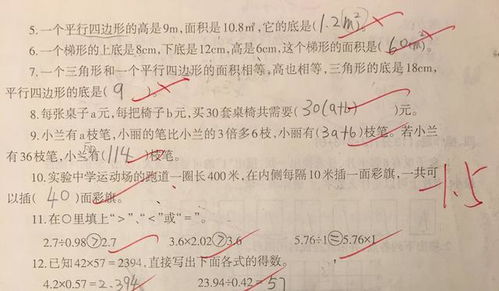 5.一个平行四边形的高是9m,面积是10.8㎡,它的底是(1.2(m²))。
6.一个梯形的上底是8cm,下底是12cm,高是6cm,这个梯形的面积是(60(m²))。
7.一个三角形和一个平行四边形的面积相等,高也相等,三角形的底是18cm,
平行四边形的底是(9)。
8.每张桌子a元,每把椅子b元,买30套桌椅共需要(30(a+b))元。
9.小兰有a枝笔,小丽的笔比小兰的3倍多6枝,小丽有(3a+6)枝笔。若小兰
有36枝笔,小兰有(114)枝笔。
10.实验中学运动场的跑道一圈长400米,在内侧每隔10米插一面彩旗,一共可
以插(40)面彩旗。
-1.5
11.在○里填上“>”、“<”或“=”。
2.7÷0.98>2.7 3.6×2.02>3.6 5.76÷1=5.76×1
12.已知42×57=2394,直接写出下面各式的得数。
4.2×0.57=2.394 23.94÷0.42=57